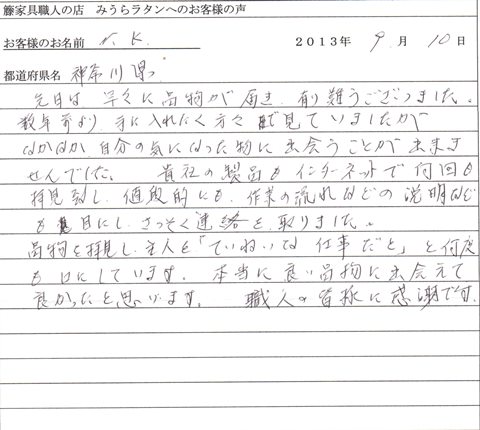 籐家具職人の店 みうらラタンへのお客様の声
お客様のお名前 Y. K. 2013年 9月 10日
都道府県名 神奈川県
先日は 早々に品物が届き、有り難うございました。
数年前より、手に入れたく方々 見ていましたが
なかなか自分の気に入った物に出会うことが出来ま
せんでした。 貴社の製品も インターネットで何回も
拝見致し、値段的にも、作業の流れなどの説明なども
も 目にし、さっそく連絡を取りました。
品物を拝見し、主人も「ていねいな仕事だと」と何度
も口にしています。本当に良い品物に出会えて
良かったと思います。 職人の皆様に感謝です。